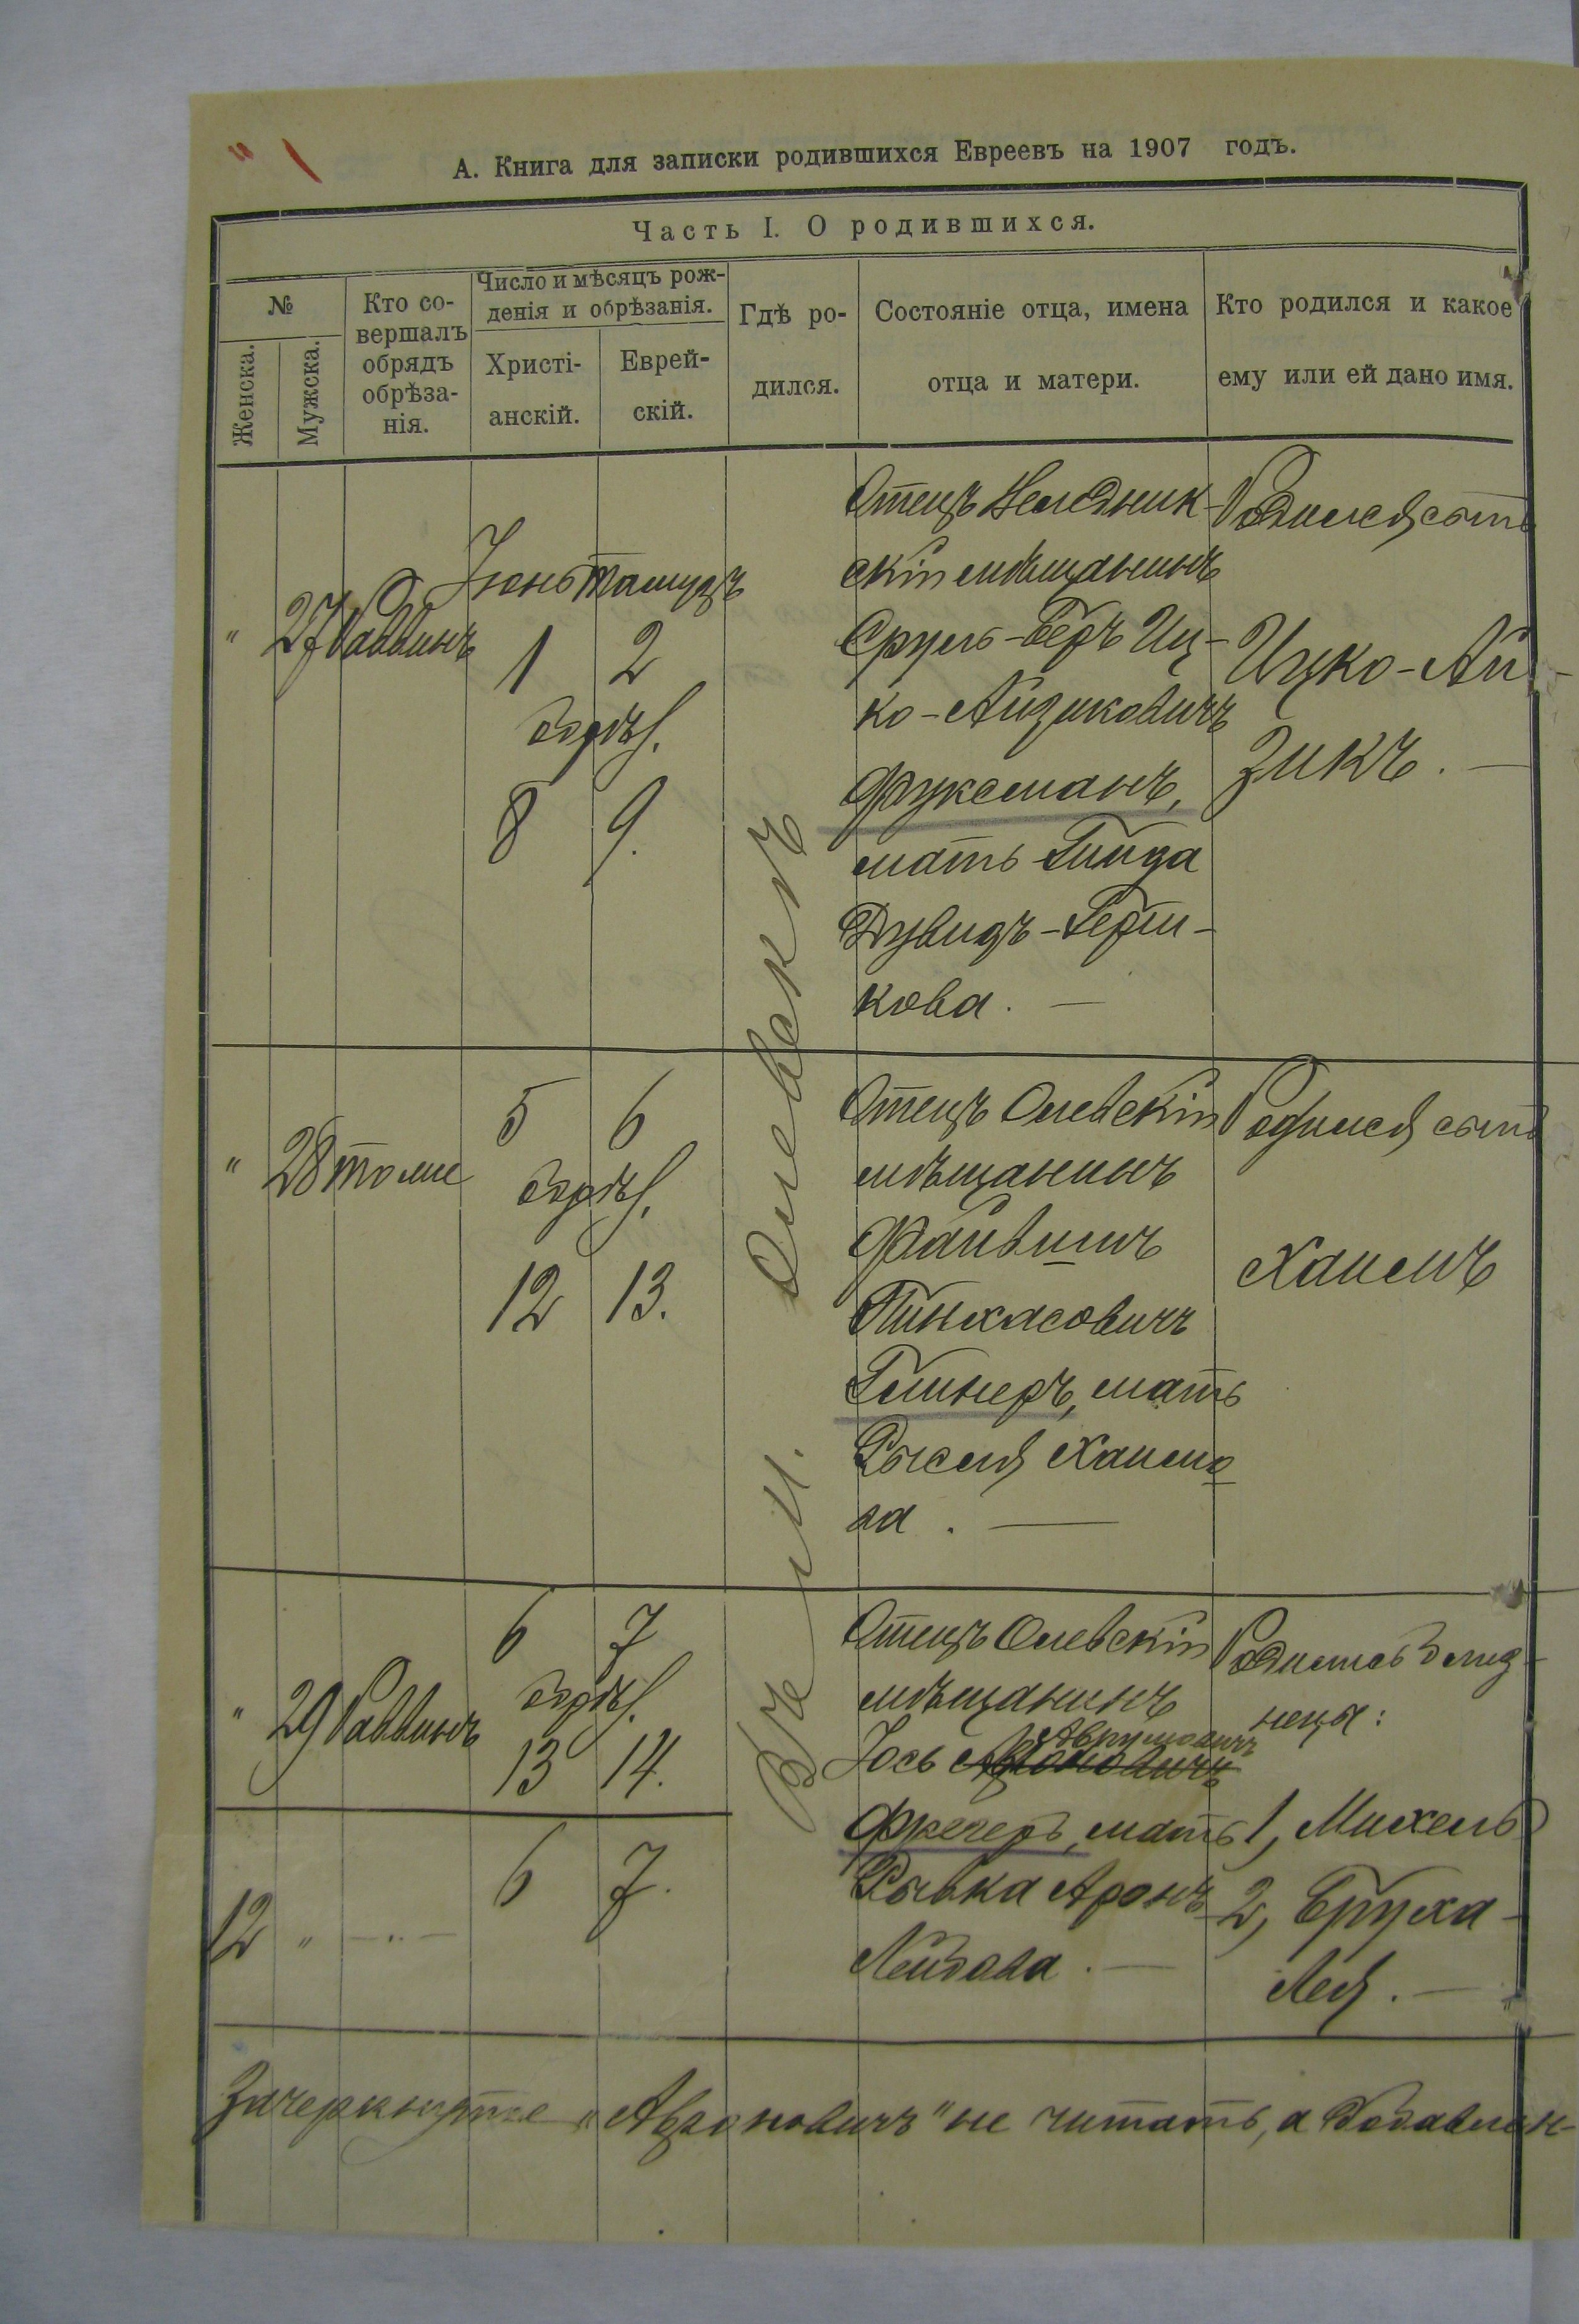 А. Книга для записки родившихся Евреевъ на 1907 годъ.
Часть I. О родившихся.
№
Женска.
Мужска.
Кто со-
вершалъ
обрядъ
обрѣза-
нія.
Число и мѣсяцъ рож-
денія и обрѣзанія.
Христі-
анскій.
Еврей-
скій.
Гдѣ ро-
дился.
Состояніе отца, имена
отца и матери.
Кто родился и какое
ему или ей дано имя.
" 27 Раввинъ
Іюнь Тамузъ
1 2
обрѣз.
8 9.
Въ м. Олевскѣ
Отецъ
скій мѣщанинъ
Сруль-Беръ Иц-
ко-Айзиковичъ
Фуксманъ,
мать Гинда
Дувидъ-Герш-
кова. —
Родился сынъ
Ицко-Ай-
зикъ. —
" 28 тоже
5 6
обрѣз.
12 13.
Отецъ Олевскій
мѣщанинъ
Файвишъ
Пинхасовичъ
Глинеръ, мать
Рысля Хаимо
ва. —
Родился сынъ
Хаимъ
" 29 Раввинъ
6 7
обрѣз.
13 14.
12 " — " —
6 7.
Отецъ Олевскій
мѣщанинъ
Аврумовичъ
Іось Ароновичъ
мать
Рывка Аронъ-
Лейбова. —
Родились близ-
нецы:
1, Михель
2, Бруха-
Лея. —
Зачеркнутое „Ароновичъ" не читать, а добавлен-